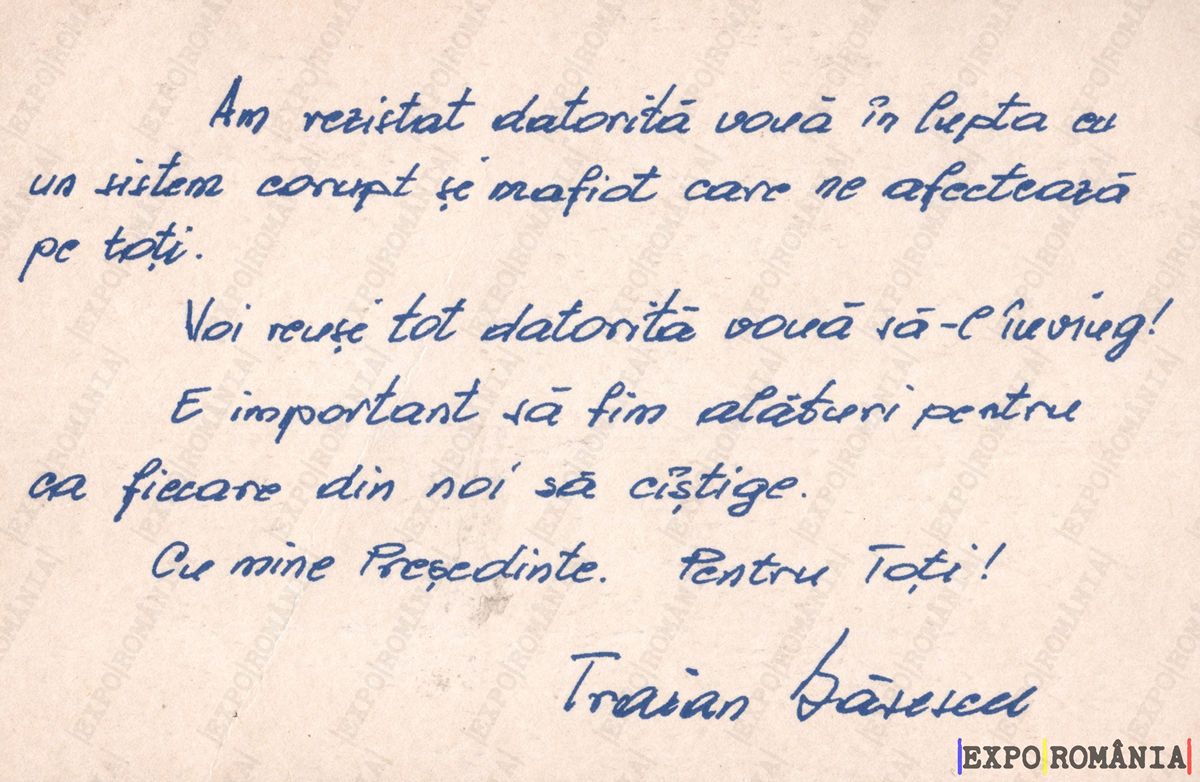 Am rezistat datorită vouă în lupta cu
un sistem corupt și mafiot care ne afectează
pe toți.
Voi reuși tot datorită vouă să-l înving!
E important să fim alături pentru
ca fiecare din noi să cîștige.
Cu mine Președinte. Pentru Toți!
Traian Băsescu
|EXPO|ROMÂNIA|